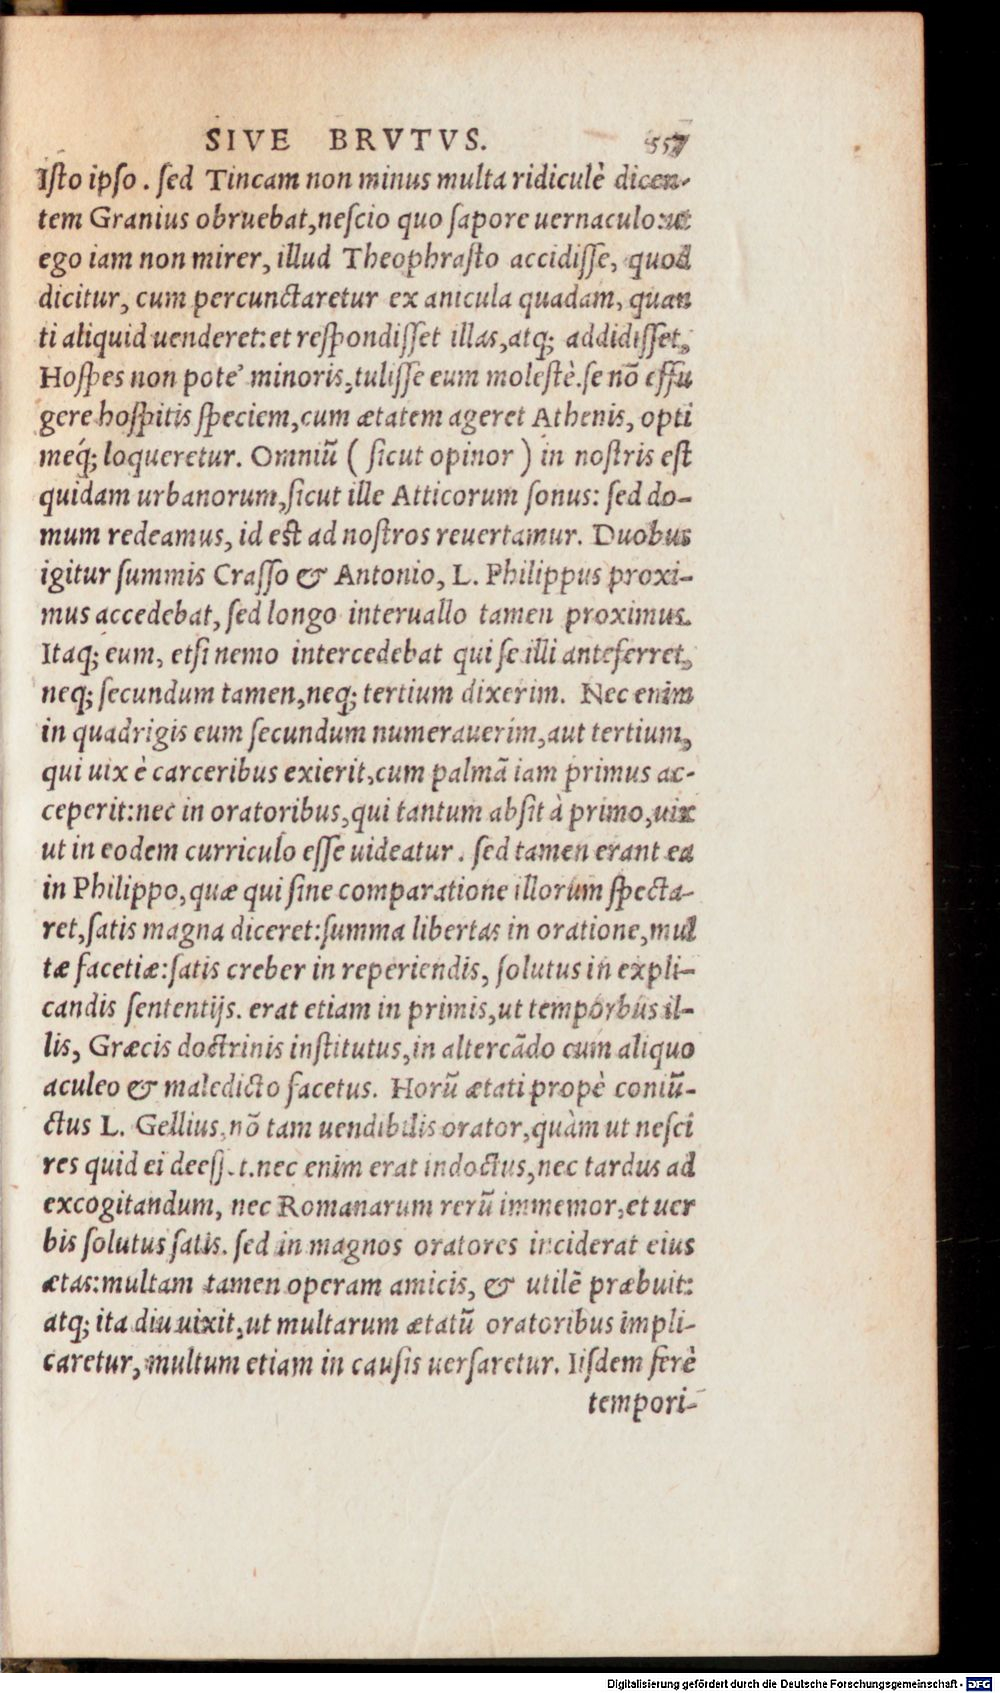 SIVE BRVTVS. 557
Isto ipso. sed Tincam non minus multa ridiculè dicen-
tem Granius obruebat, nescio quo sapore uernaculo: ut
ego iam non mirer, illud Theophrasto accidisse, quod
dicitur, cum percunctaretur ex anicula quadam, quan
ti aliquid uenderet: et respondisset illas, atq; addidisset,
Hospes non pote' minoris, tulisse eum molestè. se nō effu
gere hospitis speciem, cum ætatem ageret Athenis, opti
méq; loqueretur. Omniū ( sicut opinor ) in nostris est
quidam urbanorum, sicut ille Atticorum sonus: sed do-
mum redeamus, id est ad nostros reuertamur. Duobus
igitur summis Crasso & Antonio, L. Philippus proxi-
mus accedebat, sed longo interuallo tamen proximus.
Itaq; eum, etsi nemo intercedebat qui se illi anteferret,
neq; secundum tamen, neq; tertium dixerim. Nec enim
in quadrigis eum secundum numerauerim, aut tertium,
qui uix è carceribus exierit, cum palmā iam primus ac-
ceperit: nec in oratoribus, qui tantum absit à primo, uix
ut in eodem curriculo esse uideatur. sed tamen erant ea
in Philippo, quæ qui sine comparatione illorum specta-
ret, satis magna diceret: summa libertas in oratione, mul
tæ facetiæ: satis creber in reperiendis, solutus in expli-
candis sententijs. erat etiam in primis, ut temporbus il-
lis, Græcis doctrinis institutus, in altercādo cum aliquo
aculeo & maledicto facetus. Horū ætati propè coniū-
ctus L. Gellius, nō tam uendibilis orator, quàm ut nesci
res quid ei deess.t. nec enim erat indoctus, nec tardus ad
excogitandum, nec Romanarum rerū immemor, et uer
bis solutus satis. sed in magnos oratores inciderat eius
ætas: multam tamen operam amicis, & utilē præbuit:
atq; ita diu uixit, ut multarum ætatū oratoribus impli-
caretur, multum etiam in causis uersaretur. Iisdem ferè
tempori-
Digitalisierung gefördert durch die Deutsche Forschungsgemeinschaft - DFG